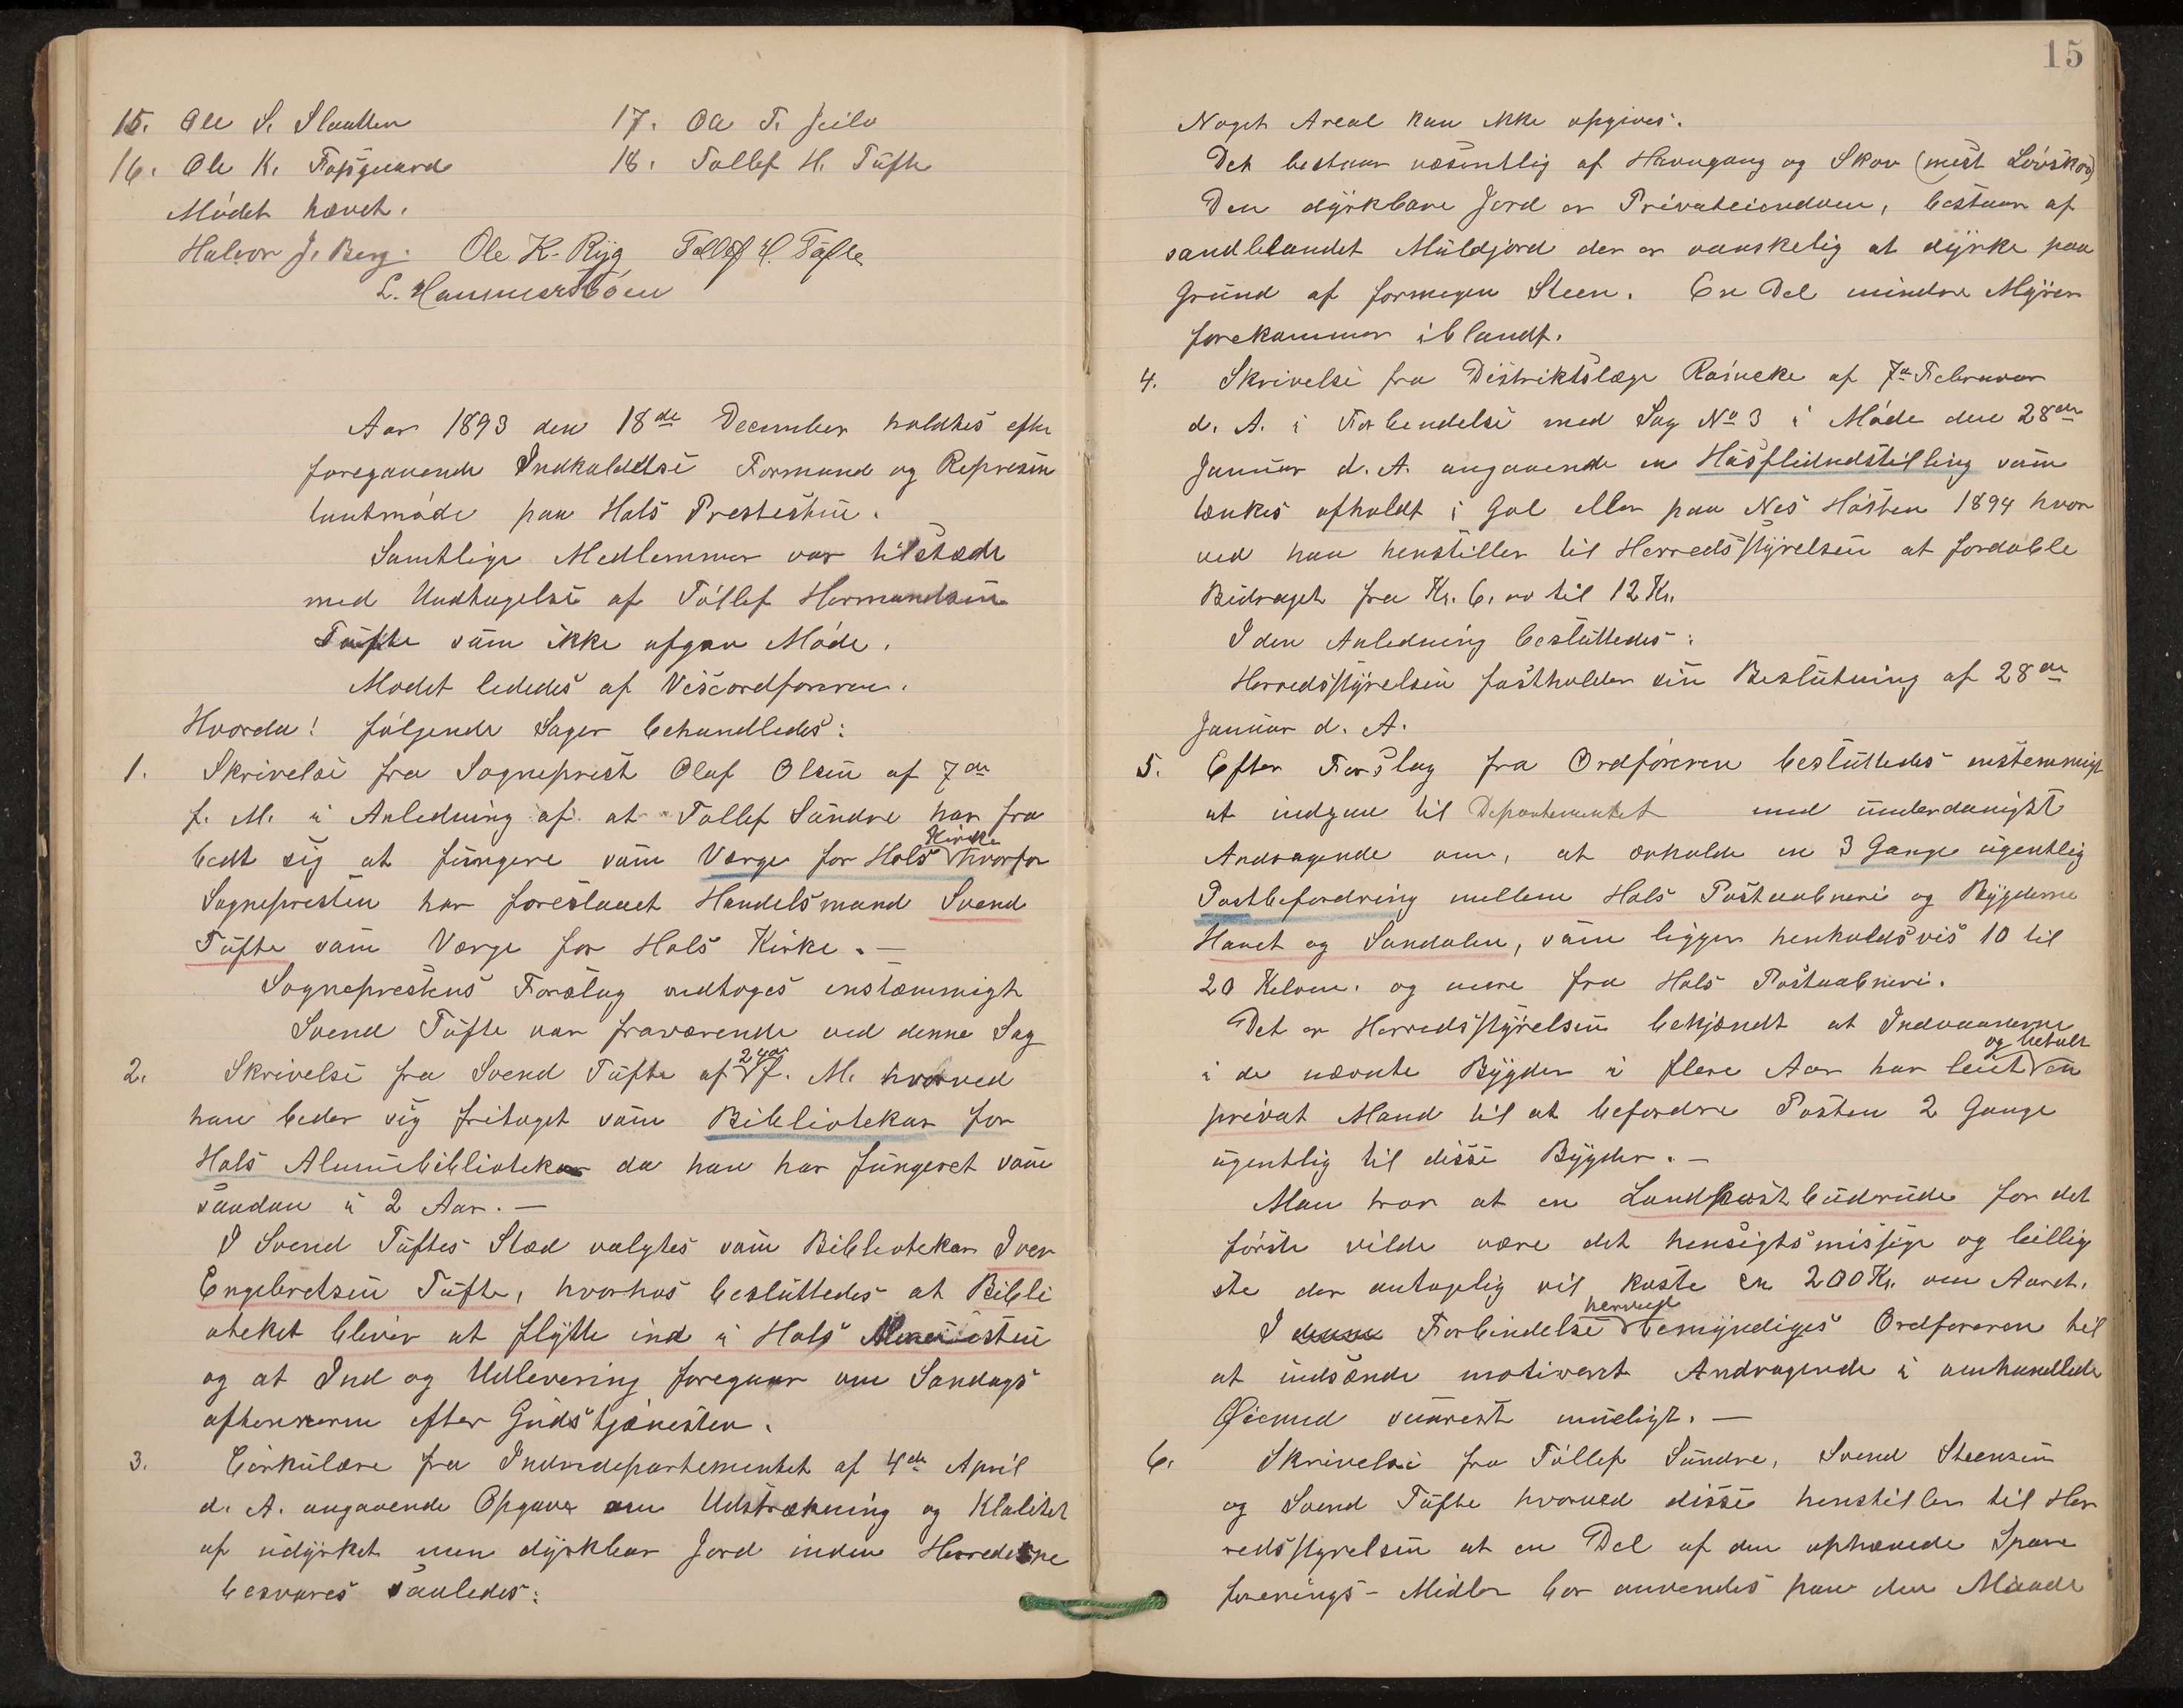 15. Ole S. Slaatten
17. Ole T. Jeilo
16. Ole K. Fossgaard
18. Tollef H. Tufte
Mödet hævet.
Halvor J. Berg. Ole K. Ryg Tollef H. Tufte
L. Hammersböen
Aar 1893 den 18de December holdtes efter
foregaaende Indkaldelse Formand og Represen
tantmöde paa Hols Prestestue.
Samtlige Medlemmer var tilstæde
med Undtagelse af Tollef Hermandsen
Tufte som ikke afgav Möde.
Mödet lededes af Viseordföreren.
Hvorda! fölgende Sager behandledes:
1. Skrivelse fra Sogneprest Oluf Olsen af 7de
f. M. i Anledning af at Tollef Sundre har fra
Kirke
bedt sig at fungere som Værge for Hols hvorfor
Sognepresten har foreslaaet Handelsmand Svend
Tufte som Værge for Hols Kirke. —
Sogneprestens Forslag vedtoges enstæmmigt
Svend Tufte var fraværende ved denne Sag
2. Skrivelse fra Svend Tufte af 24de f. M. hvorved
han beder sig fritaget som Bibliotekar for
Hols Almuebibliotekar da han har fungeret som
saadan i 2 Aar. —
I Svend Tuftes Stæd valgtes som Bibliotekar Iver
Engebretsen Tufte, hvorhos besluttedes at Bibli
oteket bliver at flytte ind i Hols Almuestue
og at Ind og Udlevering foregaar om Söndags
aftenerne efter Gudstjänesten.
3. Cirkulære fra Indredepartementet af 4de April
d. A. angaaende Opgave om Udstrækning og Kvalitet
af udyrket men dyrkbar Jord inden Herrederne
besvares saaledes:
15
Noget Areal kan ikke opgives.
Det bestaar væsentlig af Havnegang og Skov (mest Lövskov)
Den dyrkbare Jord er Privateiendom, bestaar af
sandblandet Muldjord der er vanskelig at dyrke paa
Grund af formegen Steen. En Del mindre Myrer
forekommer iblandt.
4. Skrivelse fra Distriktslæge Reincke af 7de Februar
d. A. i Forbindelse med Sag No 3 i Möde den 28de
Januar d. A. angaaende en Husflidudstilling som
tænkes afholdt i Gol eller paa Nes Hösten 1894 hvor
ved han henstiller til Herredsstyrelsen at fordoble
Bidraget fra Kr. 6.00 til 12 Kr.
I den Anledning besluttedes:
Herredsstyrelsen fastholder sin Beslutning af 28de
Januar d. A.
5. Efter Forslag fra Ordföreren besluttedes enstemmigt
at indgaa til Departementet med underdanigst
Andragende om, at erholde en 3 Gange ugentlig
Postbefordring mellem Hols Postaabneri og Bygderne
Hovet og Sundalen, som ligger henholdsvis 10 til
20 Kilom. og mere fra Hols Postaabneri.
Det er Herredsstyrelsen bekjændt at Indvaanerne
og betalt
i de nævnte Bygder i flere Aar har leiet en
privat Mand til at befordre Posten 2 Gange
ugentlig til disse Bygder. —
Man tror at en Landpostbudrude for det
förste vilde være det hensigtsmissige og billig
ste der antagelig vil koste ca 200 Kr. om Aaret.
hermed
I denne Forbindelse bemyndiges Ordföreren til
at indsænde motiveret Andragende i omhandlede
Øiemed snarest mueligt. —
6. Skrivelse fra Tollef Sundre, Svend Steensen
og Svend Tufte hvorved disse henstiller til Her
redsstyrelsen at en Del af den ophævede Spare
forenings-Midler bör anvendes paa den Maade